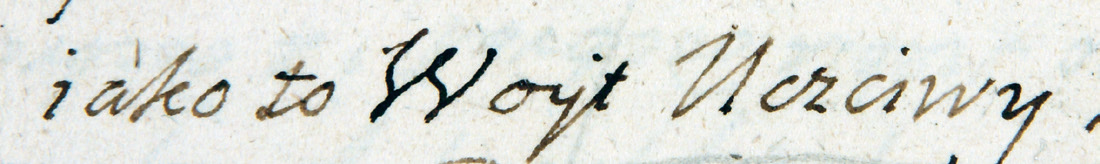 iáko to Woyt Uczciwy